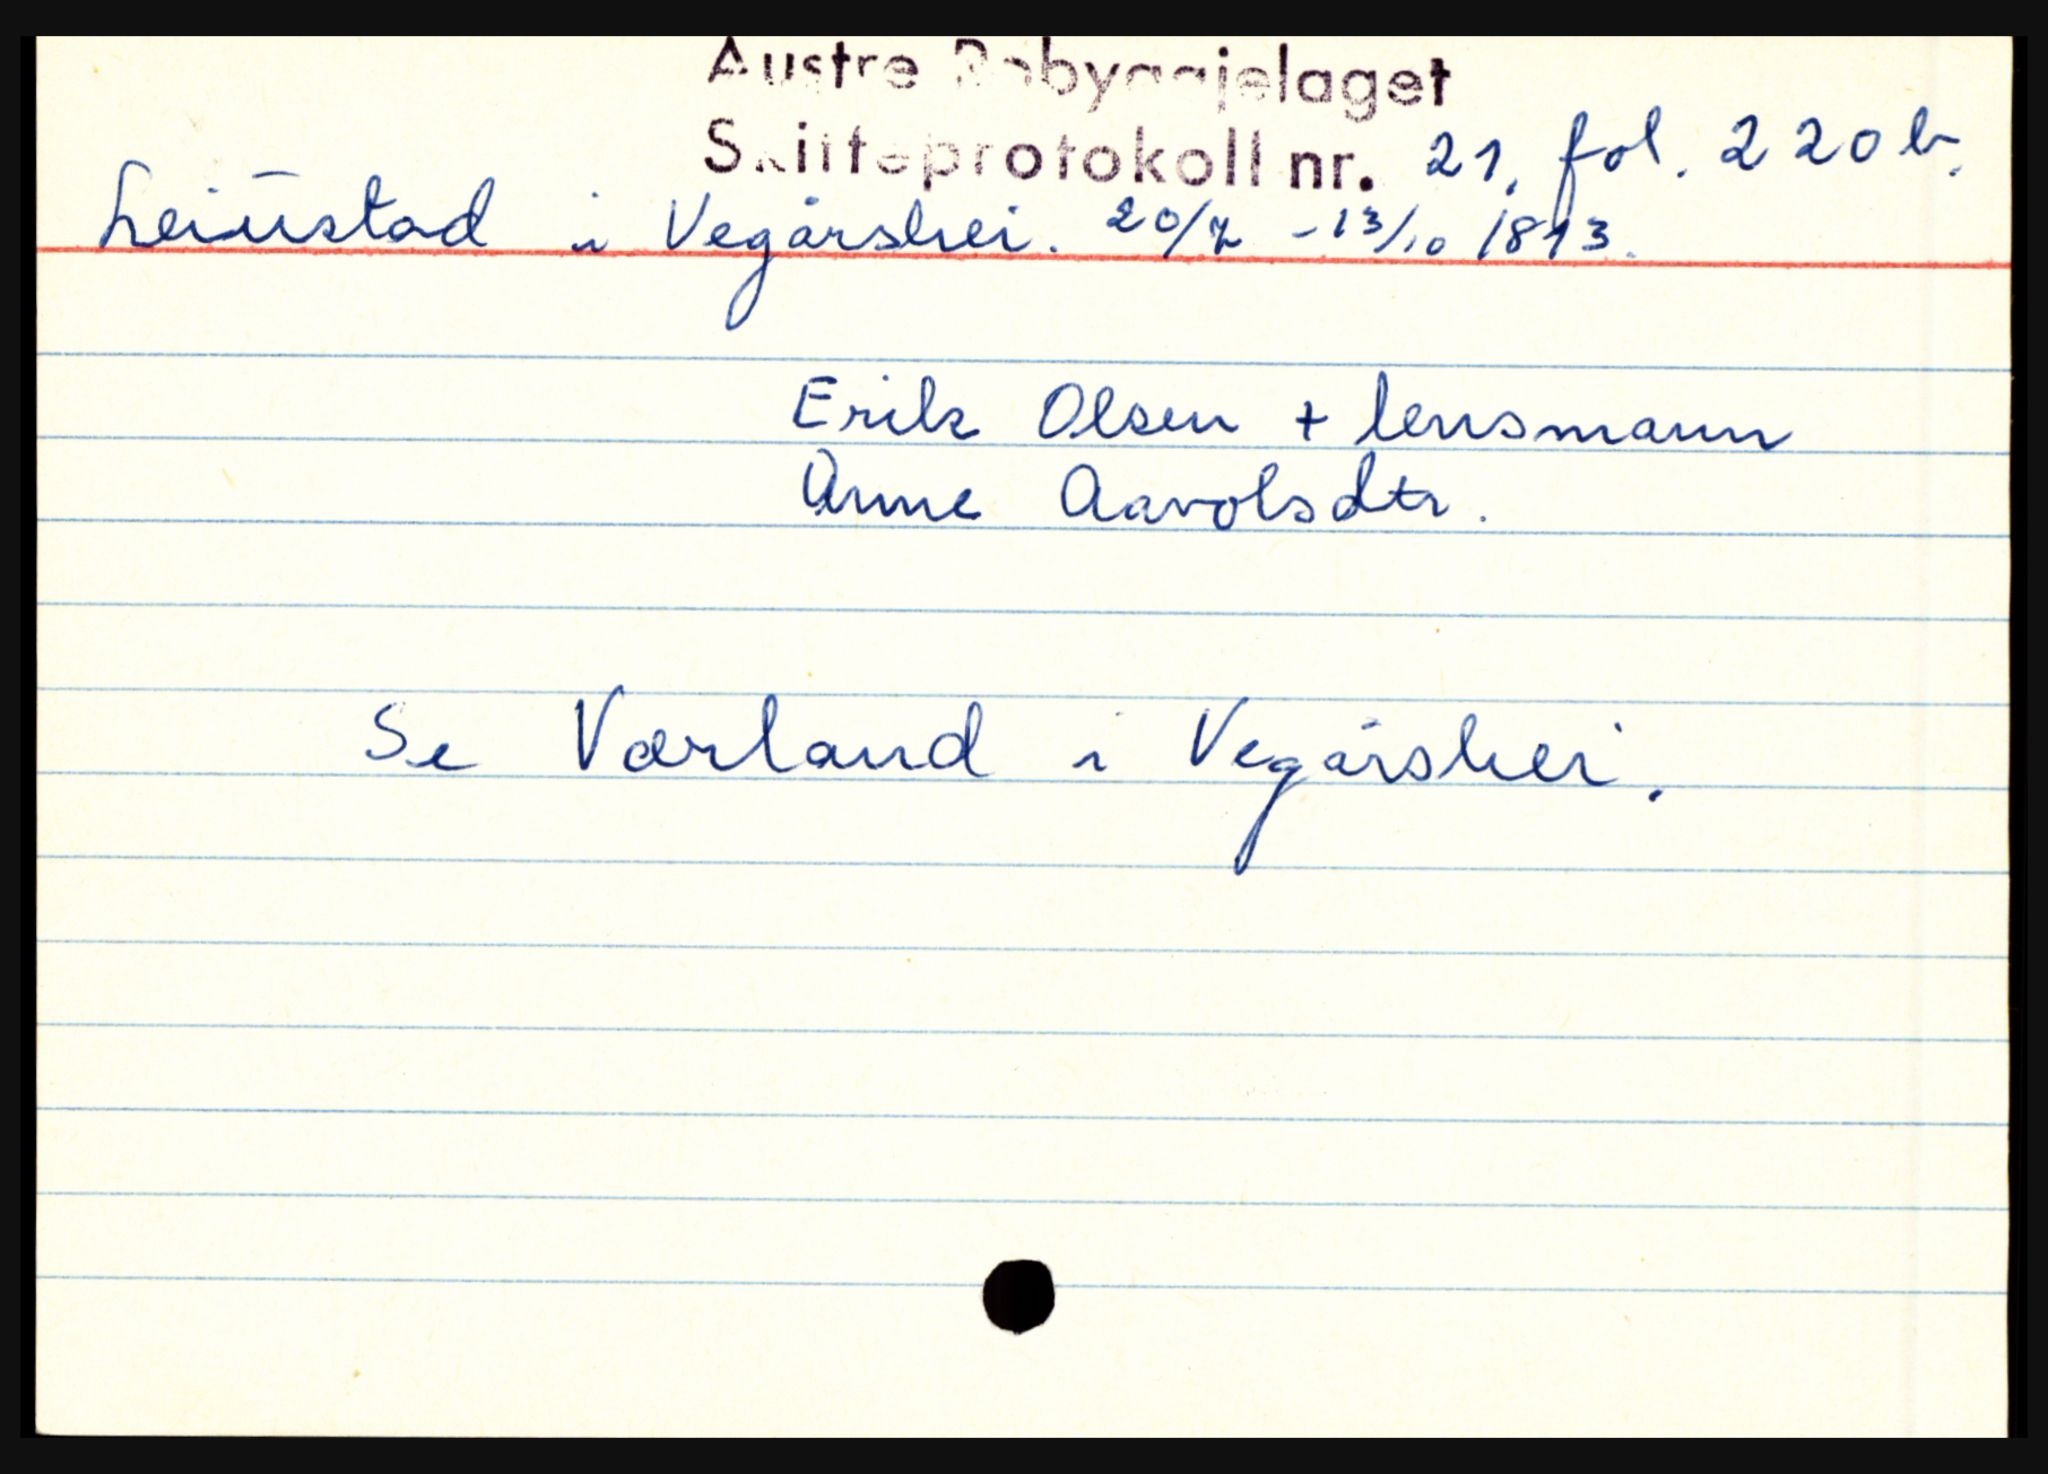 Austre Robyggjelaget
Skifteprotokoll nr. 21, fol. 220 b.
i Vegårshei. 20/7 - 13/10 1813.
Erik Olsen + lensmann
Anne Aavolsdtr.
Se Værland i Vegårshei.